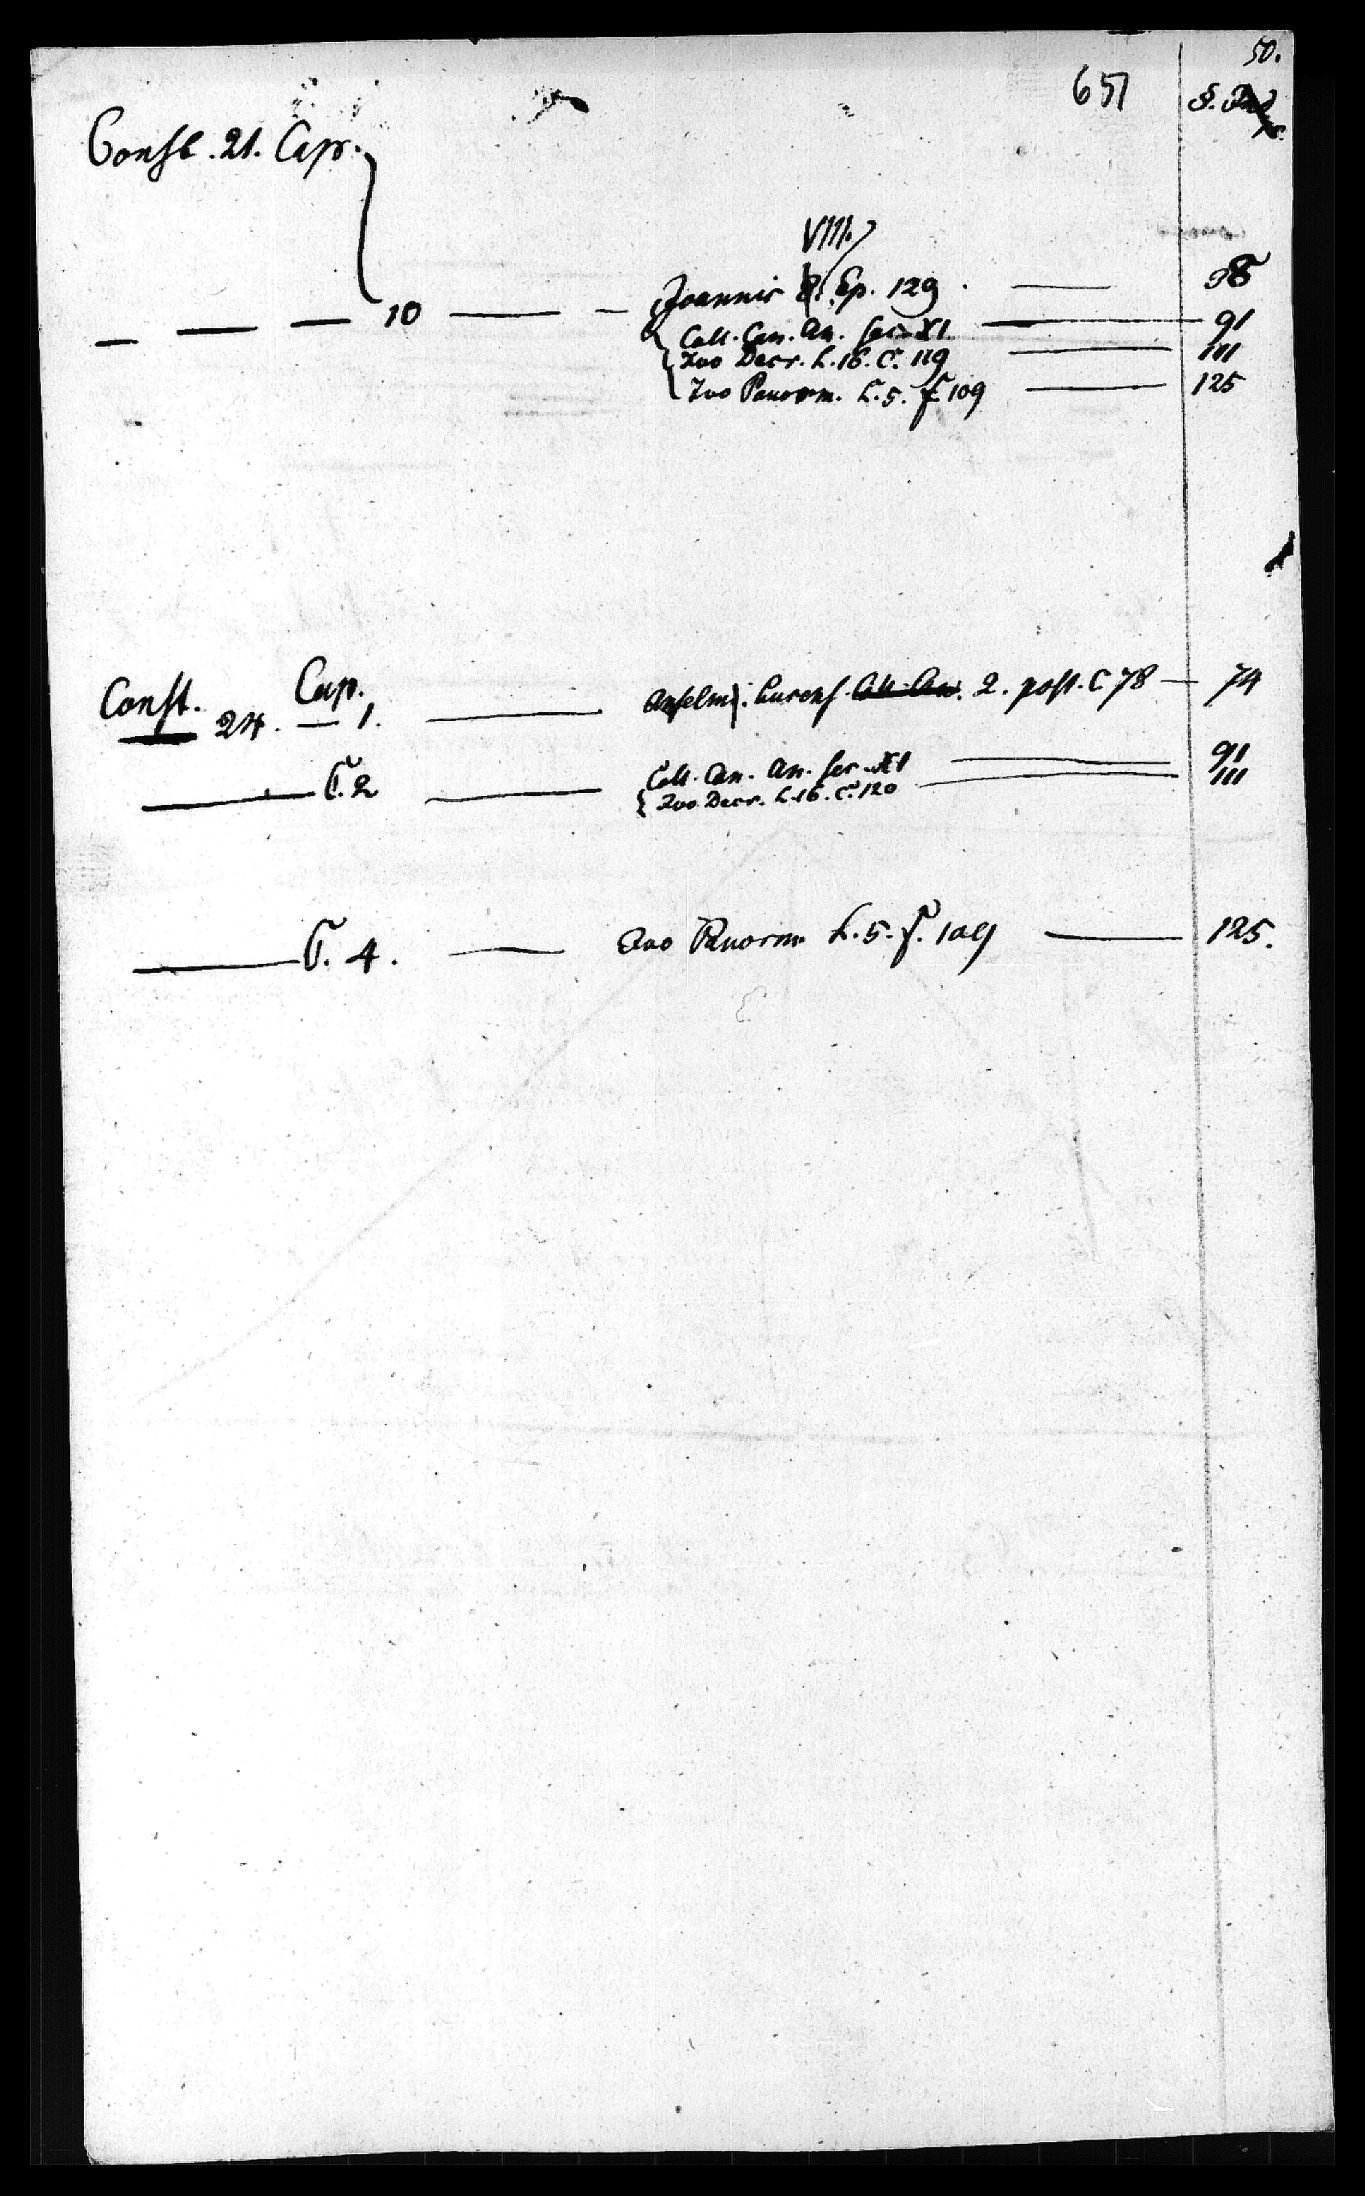 50.
651 §.
Const. 21. Cap.
VIII.
— — — 10 — — Joannis 8. Ep. 129 — 58
Coll. Can. An. sec. XI. — 91
Ivo Decr. L. 16. C. 119 — 111
Ivo Panorm. L. 5. C. 109 — 125
Const. 24. Cap. — 1. — Anselmi Lucens. Coll. Can. 2. post. C. 78 — 74
— C. 2 — Coll. Can. An. sec. XI — 91
Ivo Decr. L. 16. C. 120 — 111
— C. 4. — Ivo Panorm L. 5. C. 109 — 125.